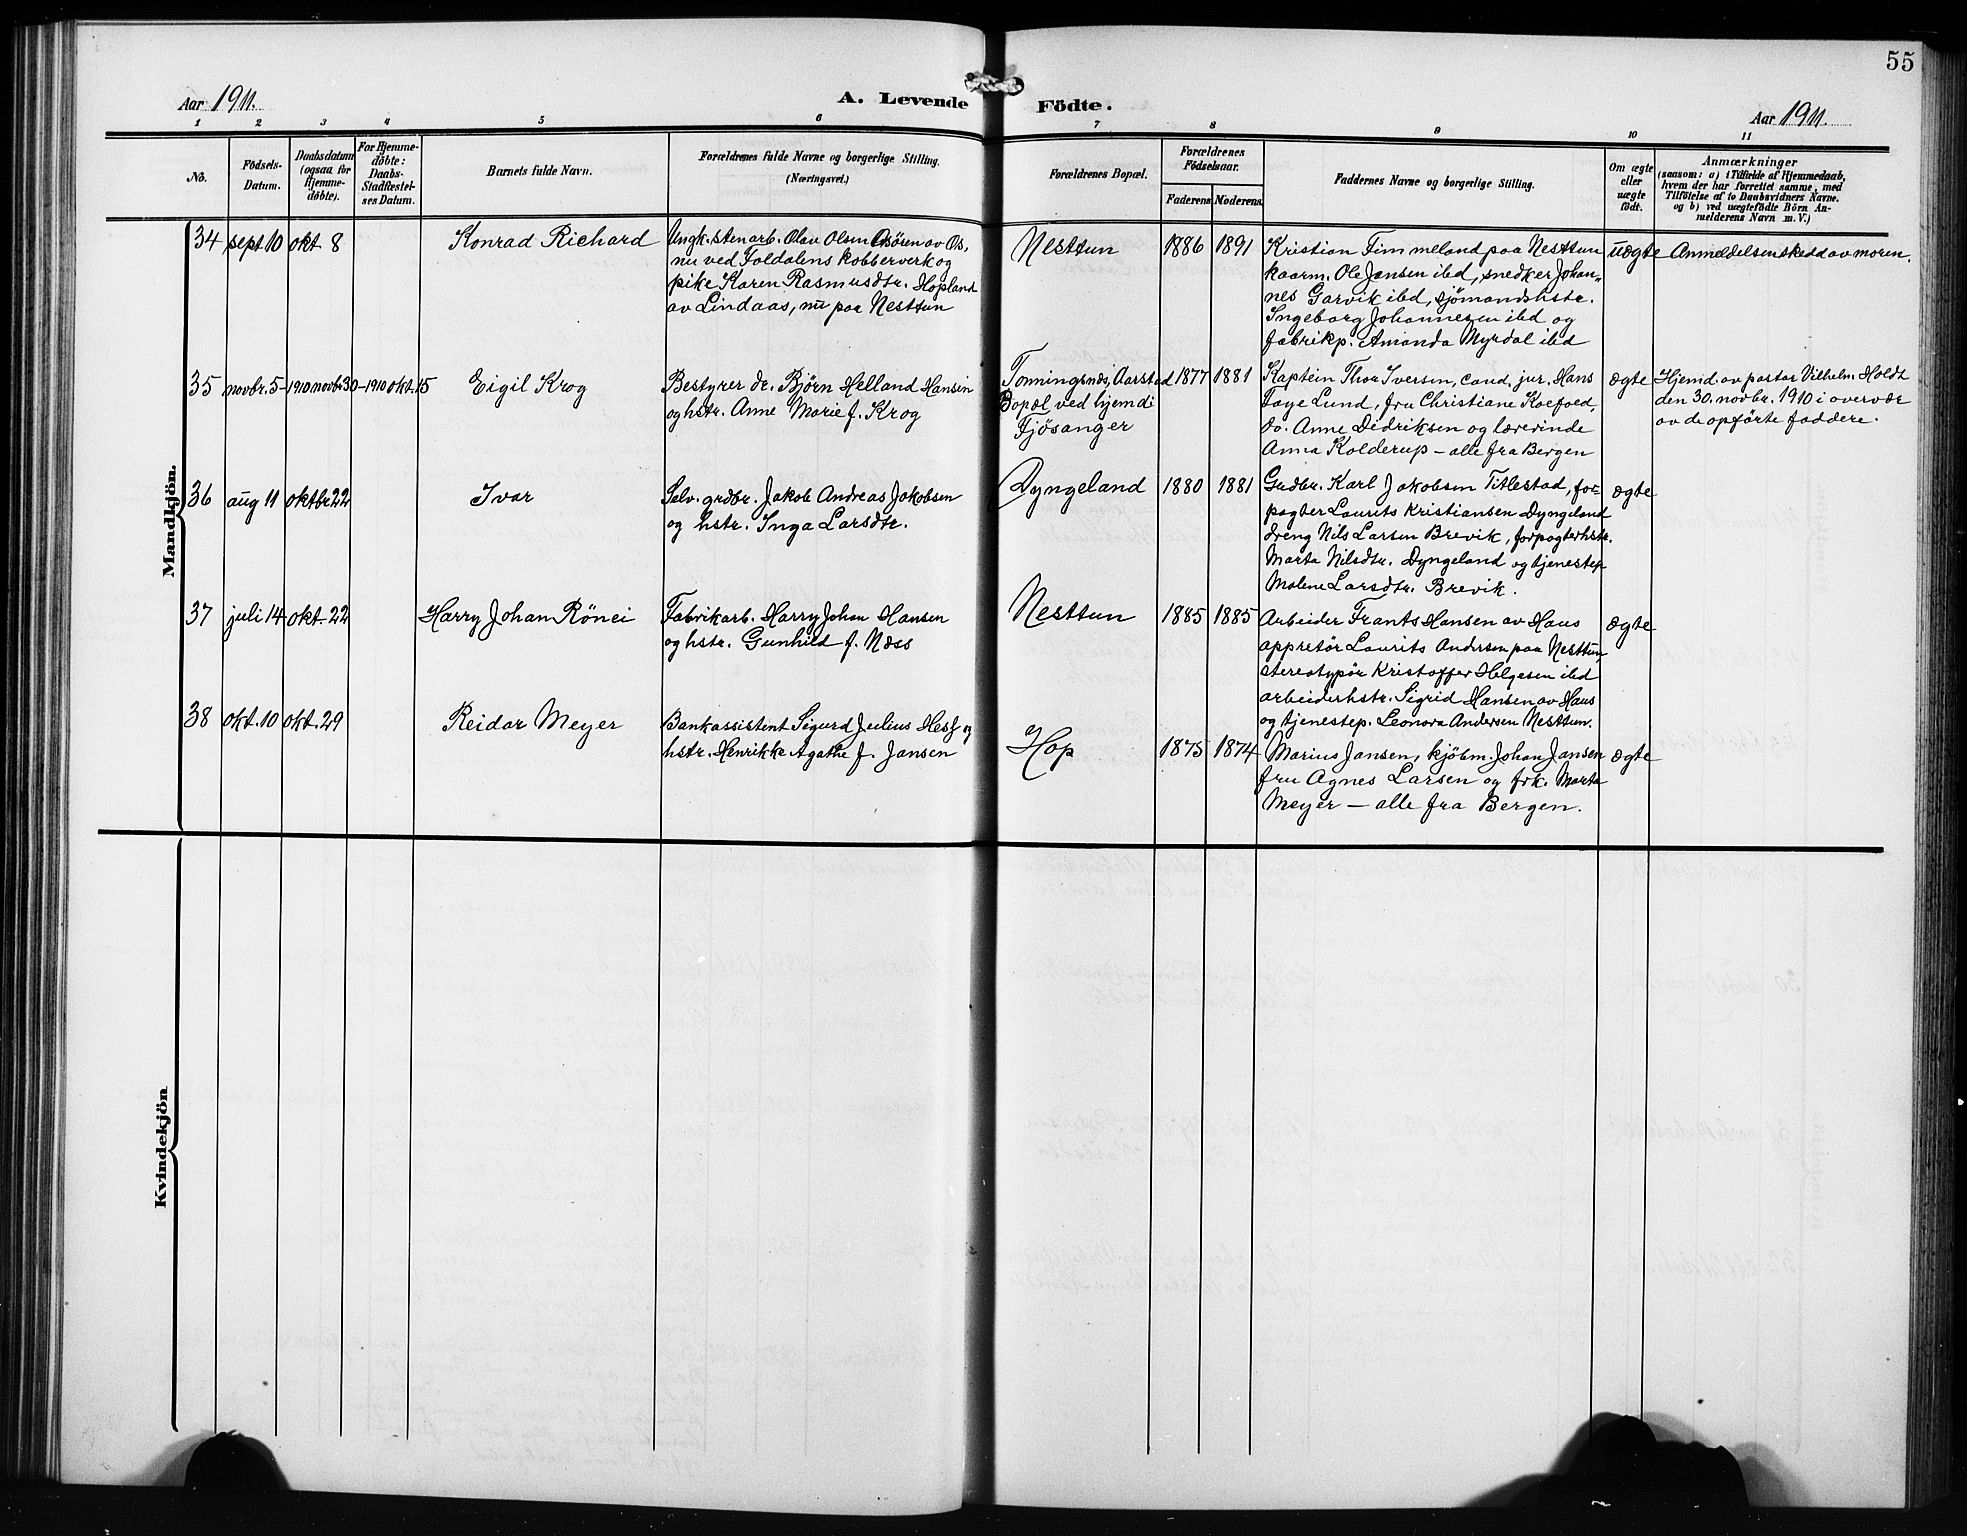 55
Aar 1911.
A. Levende
Födte.
Aar 1911.
1 2 3 4 5 6 7 8 9 10 11
No.
Födsels-
Datum.
Daabsdatum
(ogsaa for
Hjemme-
døbte).
For Hjemme-
døbte:
Daabs-
Stadfæstel-
ses Datum.
Barnets fulde Navn.
Forældrenes fulde Navne og borgerlige Stilling.
(Næringsvei.)
Forældrenes Bopæl.
Forældrenes
Födselsaar.
Faderens Moderens
Faddernes Navne og borgerlige Stilling.
Om ægte
eller
uægte
födt.
Anmærkninger
(saasom: a) i Tilfælde af Hjemmedaab,
hvem der har forrettet samme, med
Tilföielse af to Daabsvidners Navne.
og b) ved uægtefödte Börn An-
melderens Navn m. V.)
Mandkjön.
34 sept. 10 okt 8
Konrad Richard
Ungk. stenarb. Olav Olsen Åsören av Os,
nu ved Foldalens kobberverk og
pike Karen Rasmusdtr. Hopland
av Lindaas, nu paa Nesttun
Nesttun
1886 1891
Kristian Fimmeland paa Nesttun
kaarm. Ole Jansen ibd, snedker Johan-
nes Garvik ibd, sjömandshstr.
Ingeborg Johannesen ibd og
fabrikp. Amanda Myrdal ibd
uægte
Anmeldelsen skedd av moren.
35 novbr. 5-1910 novbr 30-1910 okt. 15
Eigil Krog
Bestyrer dr. Bjørn Helland Hansen
og hstr. Anne Marie f. Krog
Tonningsnes, Aarstad
Bopæl ved hjemdi
Fjösanger
1877 1881
Kaptein Thor Iversen, cand. jur. Hans
Faye Lund, fru Christiane Koefoed,
do. Anne Didriksen og lærerinde
Anna Kolderup - alle fra Bergen
ægte
Hjemd. av pastor Vilhelm Holdt
den 30. novbr. 1910 i overvær
av de opförte faddere.
36 aug 11 oktbr 22
Ivar
Selv. grdbr. Jakob Andreas Jakobsen
og hstr. Inga Larsdtr.
Dyngeland
1880 1881
Grdbr. Karl Jakobsen Titlestad, for-
pagter Laurits Kristiansen Dyngeland
dreng Nils Larsen Brevik, forpagterhstr.
Marta Nilsdtr. Dyngeland og tjenestep
Malene Larsdtr. Brevik.
ægte
37 juli 14 okt. 22
Harry Johan Rönei
Fabrikarb. Harry Johan Hansen
og hstr. Gunhild f. Næss
Nesttun
1885 1885
Arbeider Frants Hansen av Haus
appretør Laurits Andersen paa Nesttun,
stereotypör Kristoffer Helgesen ibd
arbeiderhstr. Sigrid Hansen av Haus
og tjenestep. Leonora Andersen Nesttun.
ægte
38 okt. 10 okt. 29
Reidar Meyer
Bankassistent Sigurd Julius Hess og
hstr. Henrikke Agathe f. Jansen
Hop
1875 1874
Marius Jansen, kjöbm. Johan Jansen
fru Agnes Larsen og frk. Marta
Meyer - alle fra Bergen.
ægte
Kvindekjön